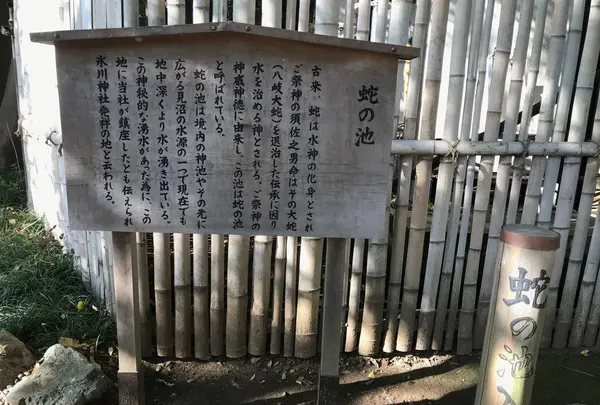 蛇の池
古来、蛇は水神の化身とされ
ご祭神の須佐之男命はその大蛇
(八岐大蛇)を退治した伝承に因り
水を治める神とされる。ご祭神の
神威神徳に由来し、この池は蛇の池
と呼ばれている。
蛇の池は境内の神池やその先に
広がる見沼の水源の一つで現在でも
地中深くより水が湧き出ている。
この神秘的な湧水があった為に、この
地に当社が鎮座したとも伝えられ
氷川神社発祥の地と云われる。
蛇の池入